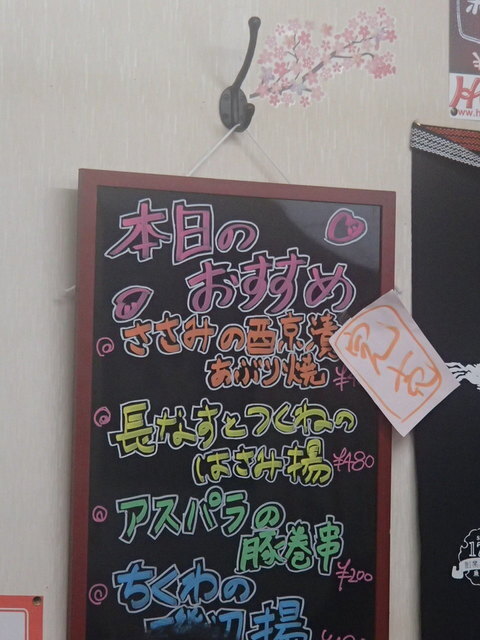 本日の
おすすめ
ささみの西京漬
あぶり焼
完売
長なすとつくねの
はさみ揚 ¥480
アスパラの
豚巻串
¥200
ちくわの
揚